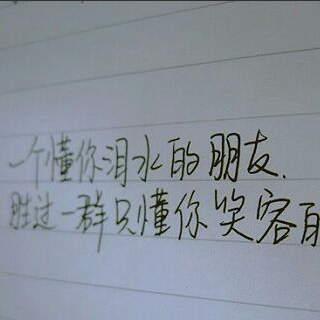 一个懂你泪水的朋友.
胜过一群只懂你笑容的